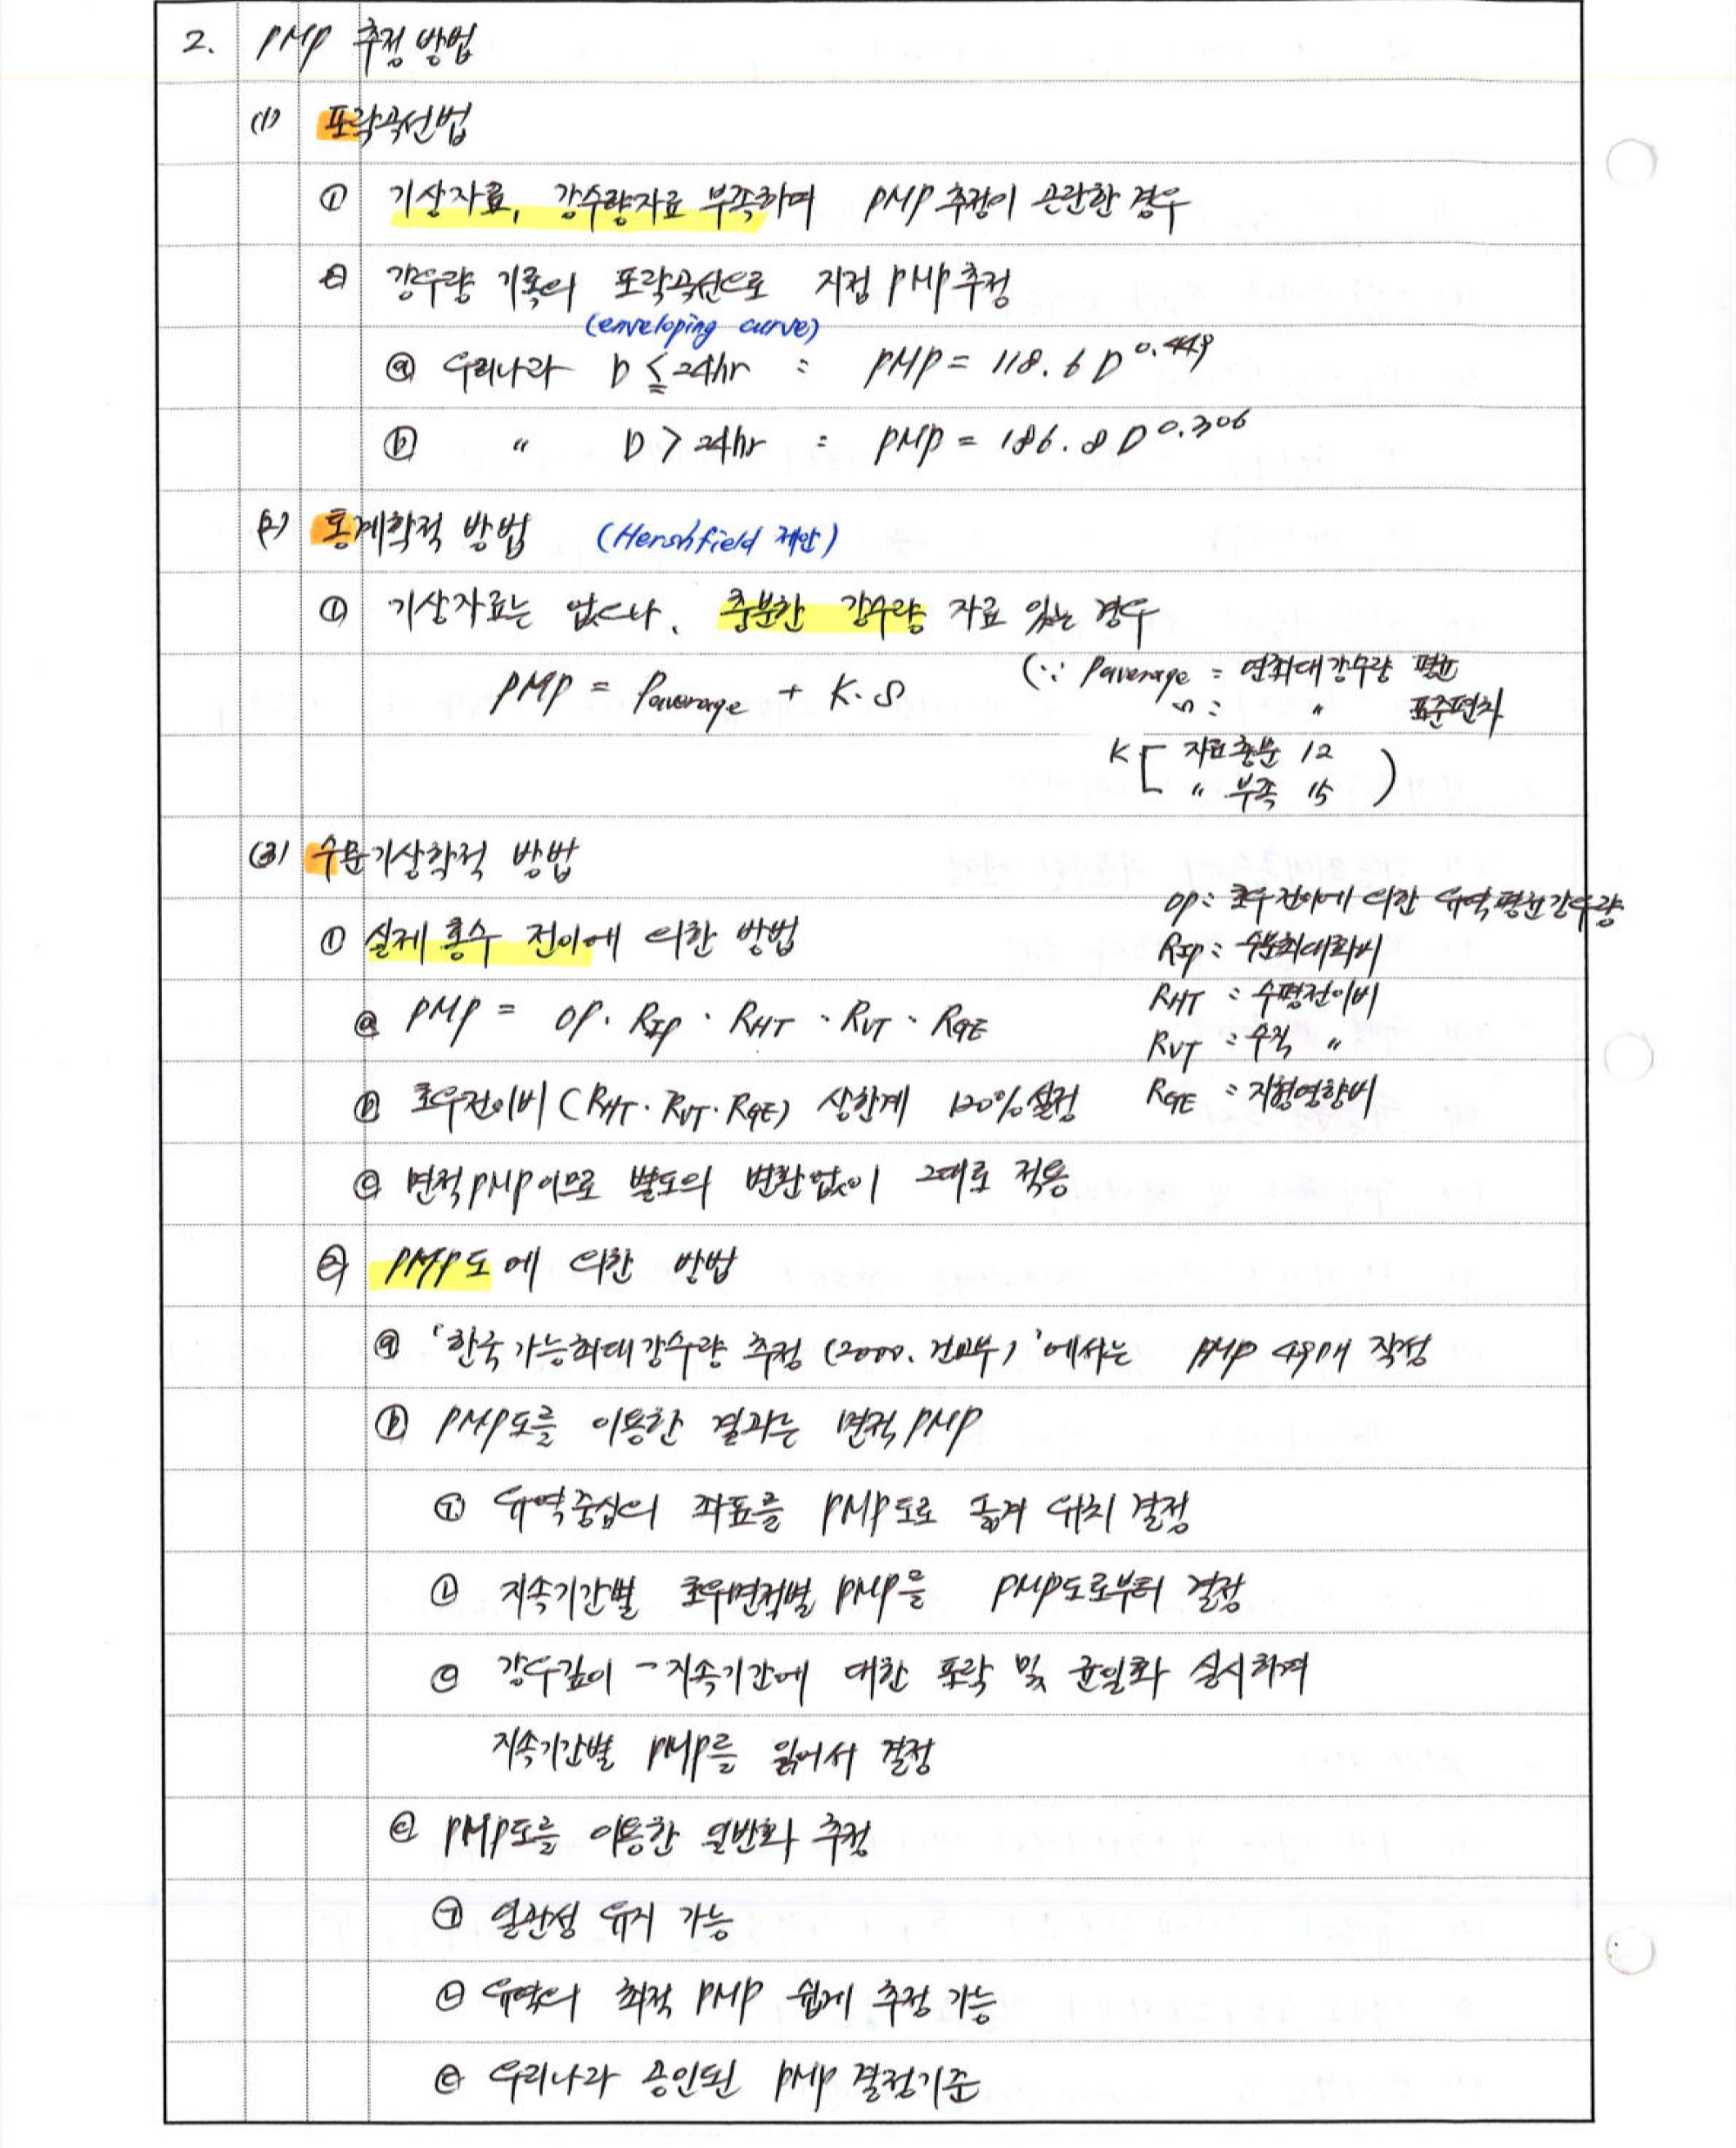 2. PMP 추정 방법
(1) 포락곡선법
① 기상자료, 강수량자료 부족하며 PMP 추정이 곤란한 경우
② 강우량 기록의 포락곡선으로 지점 PMP 추정
(enveloping curve)
ⓐ 우리나라 D ≦ 24hr : PMP = 118.6 D^0.449
ⓑ 〃 D > 24hr : PMP = 186.8 D^0.306
(2) 통계학적 방법 (Hershfield 제안)
① 기상자료는 없으나, 충분한 강수량 자료 있는 경우
PMP = Paverage + K·S (∵ Paverage = 연최대강수량 평균
S : 〃 표준편차
K [ 자료충분 12
〃 부족 15 )
(3) 수문기상학적 방법
OP : 호우전이에 의한 유역평균강우량
① 실제 홍수 전이에 의한 방법
RIP : 수분최대화비
RHT : 수평전이비
ⓐ PMP = OP · RIP · RHT · RVT · RGE
RVT : 수직 〃
RGE : 지형영향비
ⓑ 호우전이비 (RHT · RVT · RGE) 상한계 120% 설정
ⓒ 면적PMP이므로 별도의 변환없이 그대로 적용
② PMP도에 의한 방법
ⓐ '한국 가능최대강수량 추정 (2000. 건교부)'에서는 PMP 49매 작성
ⓑ PMP도를 이용한 결과는 면적 PMP
㉠ 유역중심의 좌표를 PMP도로 옮겨 위치 결정
㉡ 지속기간별 호우면적별 PMP를 PMP도로부터 결정
㉢ 강우깊이 - 지속기간에 대한 포락 및 균일화 실시하여
지속기간별 PMP를 읽어서 결정
ⓒ PMP도를 이용한 일반화 추정
㉠ 일관성 유지 가능
㉡ 유역의 최적 PMP 쉽게 추정 가능
㉢ 우리나라 승인된 PMP 결정기준